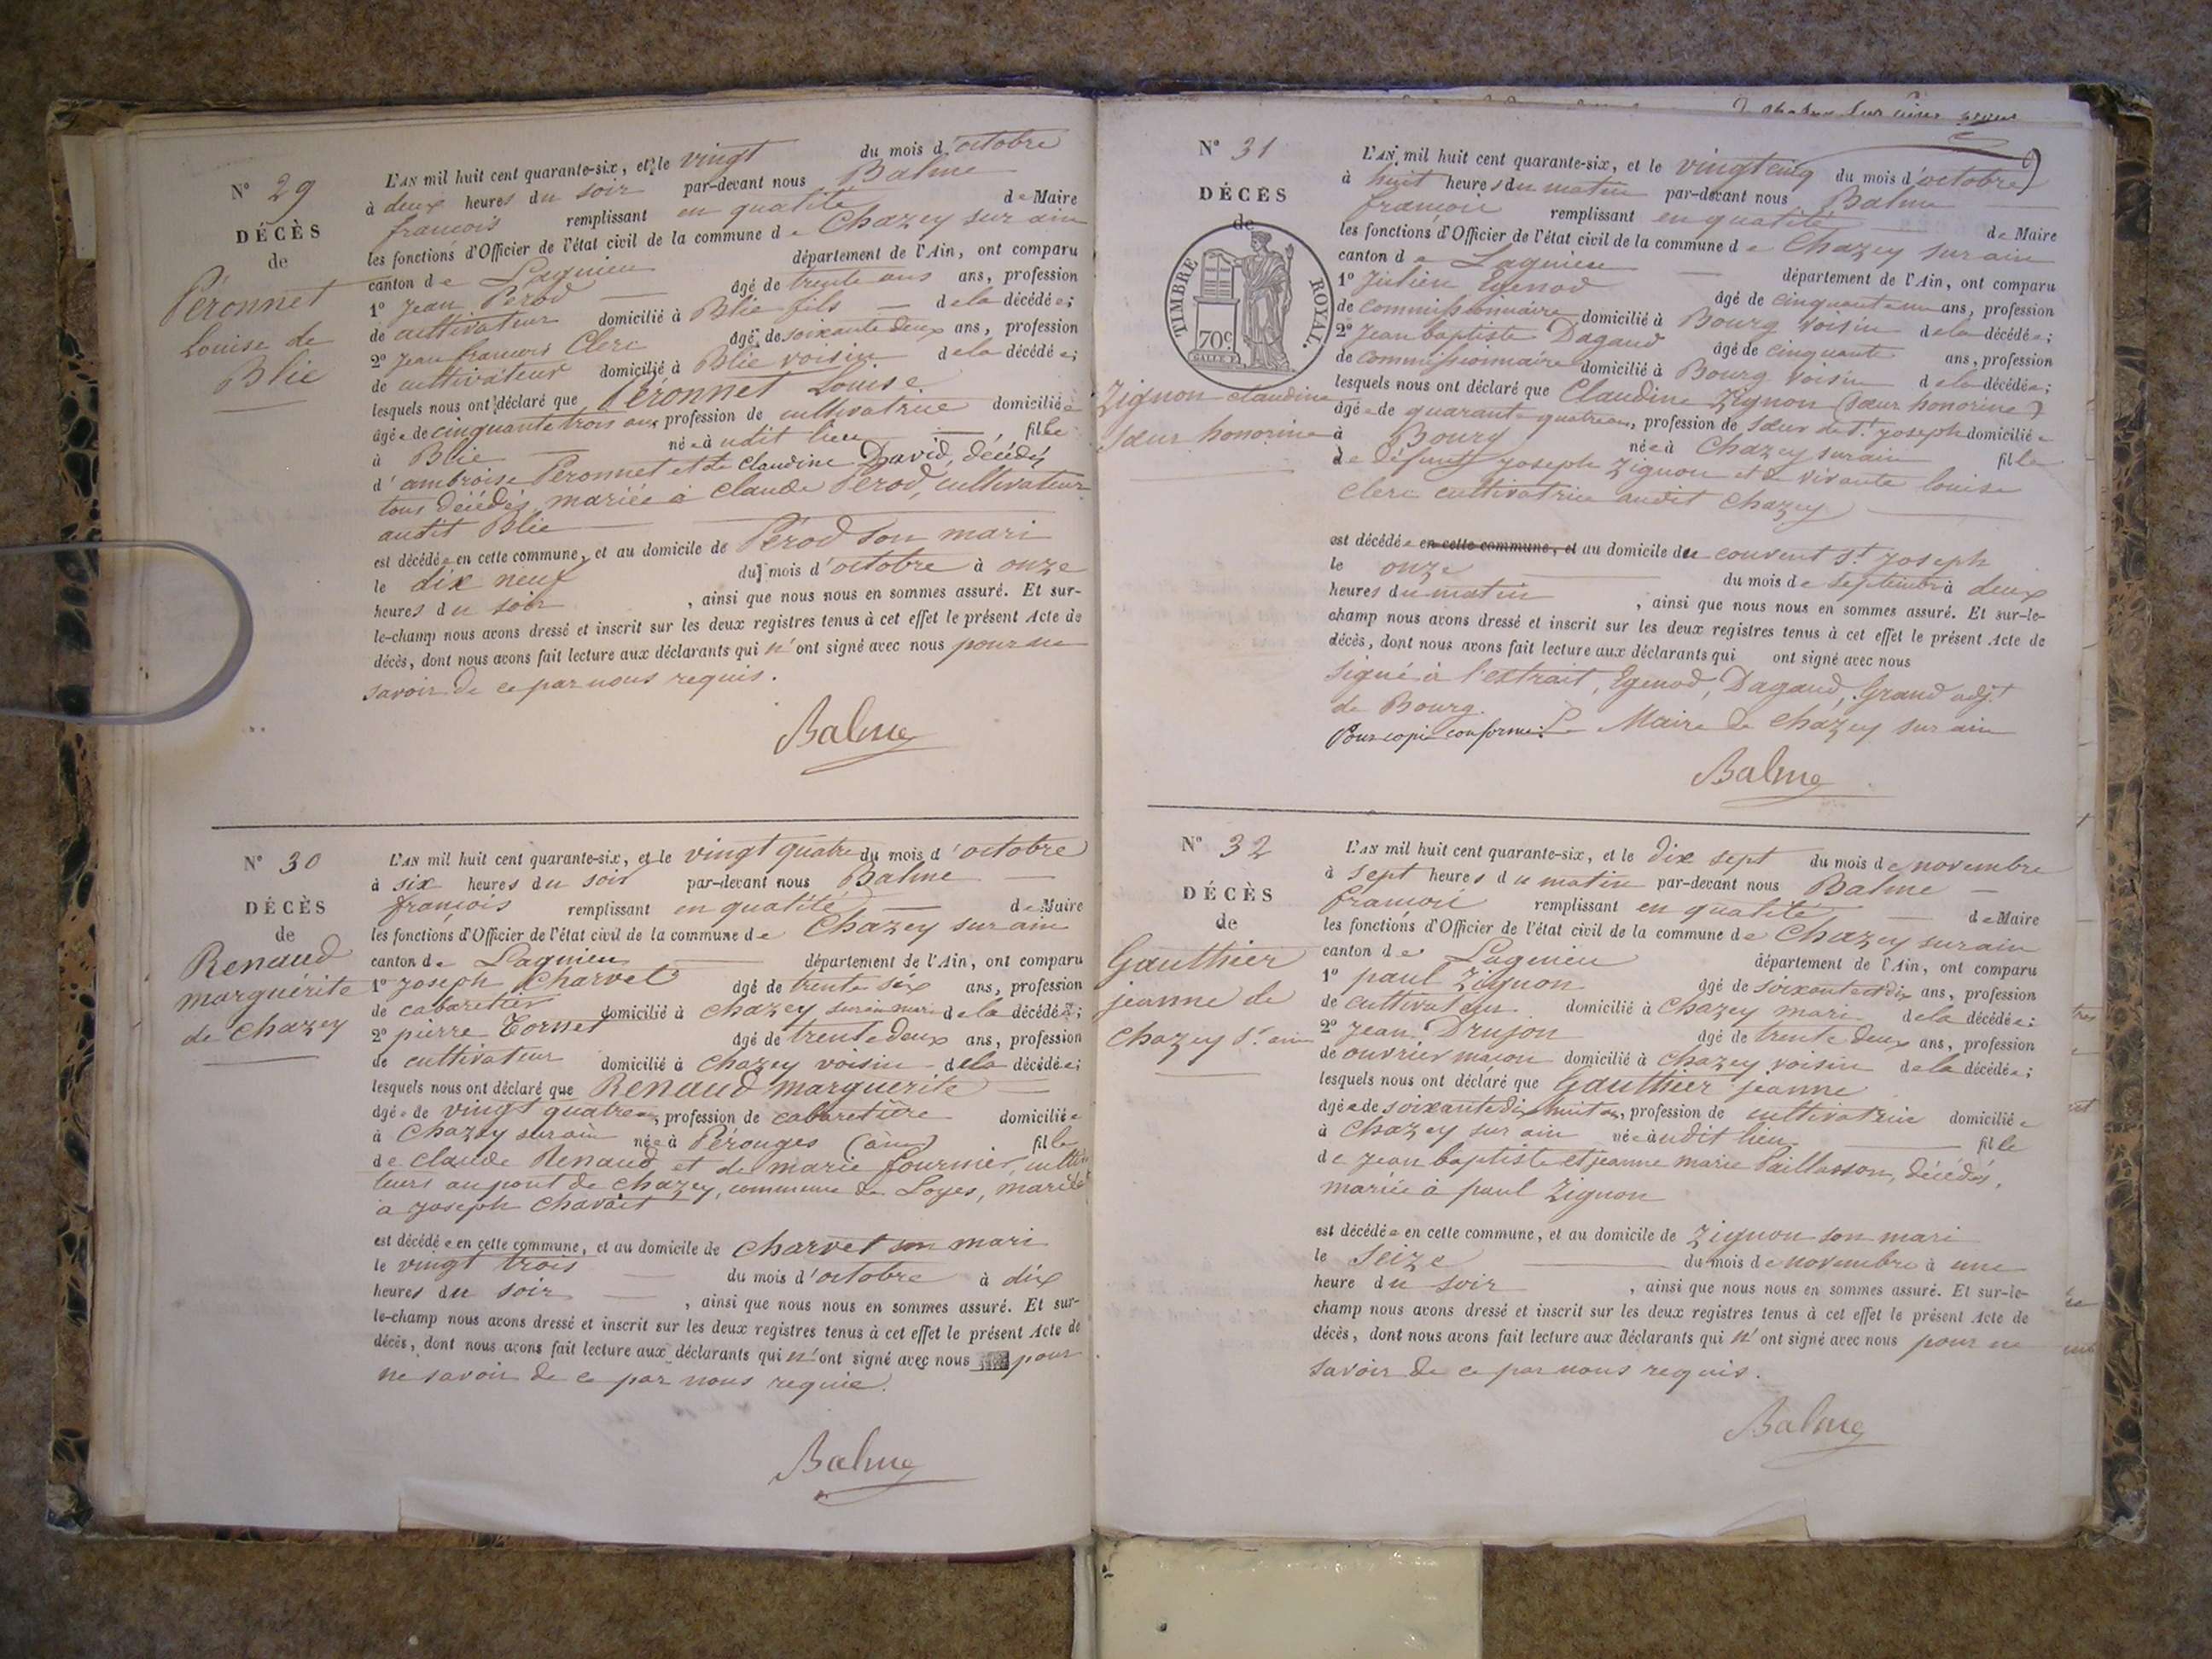 N° 29
DÉCÈS
de
Péronnet
Louise de
Blie
L'AN mil huit cent quarante-six, et le vingt du mois d'octobre
à deux heures du soir par-devant nous Balme
francois remplissant en qualité de Maire
les fonctions d'Officier de l'état civil de la commune de Chazey sur ain
canton de Lagnieu département de l'Ain, ont comparu
1° Jean Perod âgé de trente ans ans, profession
de cultivateur domicilié à Blie fils de la décédée;
2° Jean francois Clerc âgé de soixante deux ans, profession
de cultivateur domicilié à Blie voisin de la décédée;
lesquels nous ont déclaré que Péronnet Louise
âgée de cinquante trois ans, profession de cultivatrice domiciliée
à Blie née à udit lieu fille
d'ambroise Peronnet et de claudine David, décédés
tous décédés, mariée à claude Pérod, cultivateur
audit Blie
est décédée en cette commune, et au domicile de Pérod son mari
le dix neuf du mois d'octobre à onze
heures du soir, ainsi que nous nous en sommes assuré. Et sur-
le-champ nous avons dressé et inscrit sur les deux registres tenus à cet effet le présent Acte de
décès, dont nous avons fait lecture aux déclarants qui n'ont signé avec nous pour ne
savoir de ce par nous requis.
Balme
N° 30
DÉCÈS
de
Renaud
marguérite
de chazey
L'AN mil huit cent quarante-six, et le vingt quatre du mois d'octobre
à six heures du soir par-devant nous Balme
françois remplissant en qualité de Maire
les fonctions d'Officier de l'état civil de la commune de Chazey sur ain
canton de Lagnieu département de l'Ain, ont comparu
1° joseph Charvet âgé de trente six ans, profession
de cabaretier domicilié à chazey sur ain mari de la décédée;
2° pierre Cornet âgé de trente deux ans, profession
de cultivateur domicilié à chazey voisin de la décédée;
lesquels nous ont déclaré que Renaud marguerite
âgée de vingt quatre ans, profession de cabaretière domiciliée
à Chazey sur ain née à Pérouges (ain) fille
de claude Renaud et de marie fournier, cultiva
teurs au pont de chazey, commune de Loyes, mariée
à joseph Chavait
est décédée en cette commune, et au domicile de charvet son mari
le vingt trois du mois d'octobre à dix
heures du soir, ainsi que nous nous en sommes assuré. Et sur-
le-champ nous avons dressé et inscrit sur les deux registres tenus à cet effet le présent Acte de
décès, dont nous avons fait lecture aux déclarants qui n'ont signé avec nous pour
ne savoir de ce par nous requie.
Balme
N° 31
DÉCÈS
de
TIMBRE ROYAL.
70c.
Zignon claudine
sœur honorine
L'AN mil huit cent quarante-six, et le vingt cinq du mois d'octobre
à huit heures du matin par-devant nous Balme
francois remplissant en qualité de Maire
les fonctions d'Officier de l'état civil de la commune de Chazey sur ain
canton de Lagnieu département de l'Ain, ont comparu
1° Julien Egenod âgé de cinquante un ans, profession
de commissionnaire domicilié à Bourg voisin de la décédée;
2° Jean baptiste Dagaud âgé de cinquante ans, profession
de commissionnaire domicilié à Bourg voisin de la décédée;
lesquels nous ont déclaré que Claudine Zignon (sœur honorine)
âgée de quarant-quatre ans, profession de sœur de St joseph domiciliée
à Bourg née à Chazey sur ain fille
de défunt joseph Zignon et de vivante louise
clerc cultivatrice audit chazey
est décédée en cette commune, et au domicile due couvent St joseph
le onze du mois de septembre à deux
heures du matin, ainsi que nous nous en sommes assuré. Et sur-le-
champ nous avons dressé et inscrit sur les deux registres tenus à cet effet le présent Acte de
décès, dont nous avons fait lecture aux déclarants qui ont signé avec nous
signé à l'extrait, Egenod, Dagaud, Grand adjt
de Bourg.
Pour copie conforme: Le Maire de chazey sur ain
Balme
N° 32
DÉCÈS
de
Gauthier
jeanne de
chazey sr ain
L'AN mil huit cent quarante-six, et le dix sept du mois de novembre
à sept heures du matin par-devant nous Balme
francois remplissant en qualité de Maire
les fonctions d'Officier de l'état civil de la commune de Chazey sur ain
canton de Lagnieu département de l'Ain, ont comparu
1° paul Zignon âgé de soixante et dix ans, profession
de cultivateur domicilié à Chazey mari de la décédée;
2° Jean Drujon âgé de trente deux ans, profession
de ouvrier macon domicilié à chazey voisin de la décédée;
lesquels nous ont déclaré que Gauthier jeanne
âgée de soixante dix huit ans, profession de cultivatrice domiciliée
à Chazey sur ain née à udit lieu fille
de jean baptiste et jeanne marie Paillasson, décédés,
mariée à paul Zignon
est décédée en cette commune, et au domicile de Zignon son mari
le seize du mois de novembre à une
heure du soir, ainsi que nous nous en sommes assuré. Et sur-le-
champ nous avons dressé et inscrit sur les deux registres tenus à cet effet le présent Acte de
décès, dont nous avons fait lecture aux déclarants qui n'ont signé avec nous pour ne
savoir de ce par nous requis.
Balme